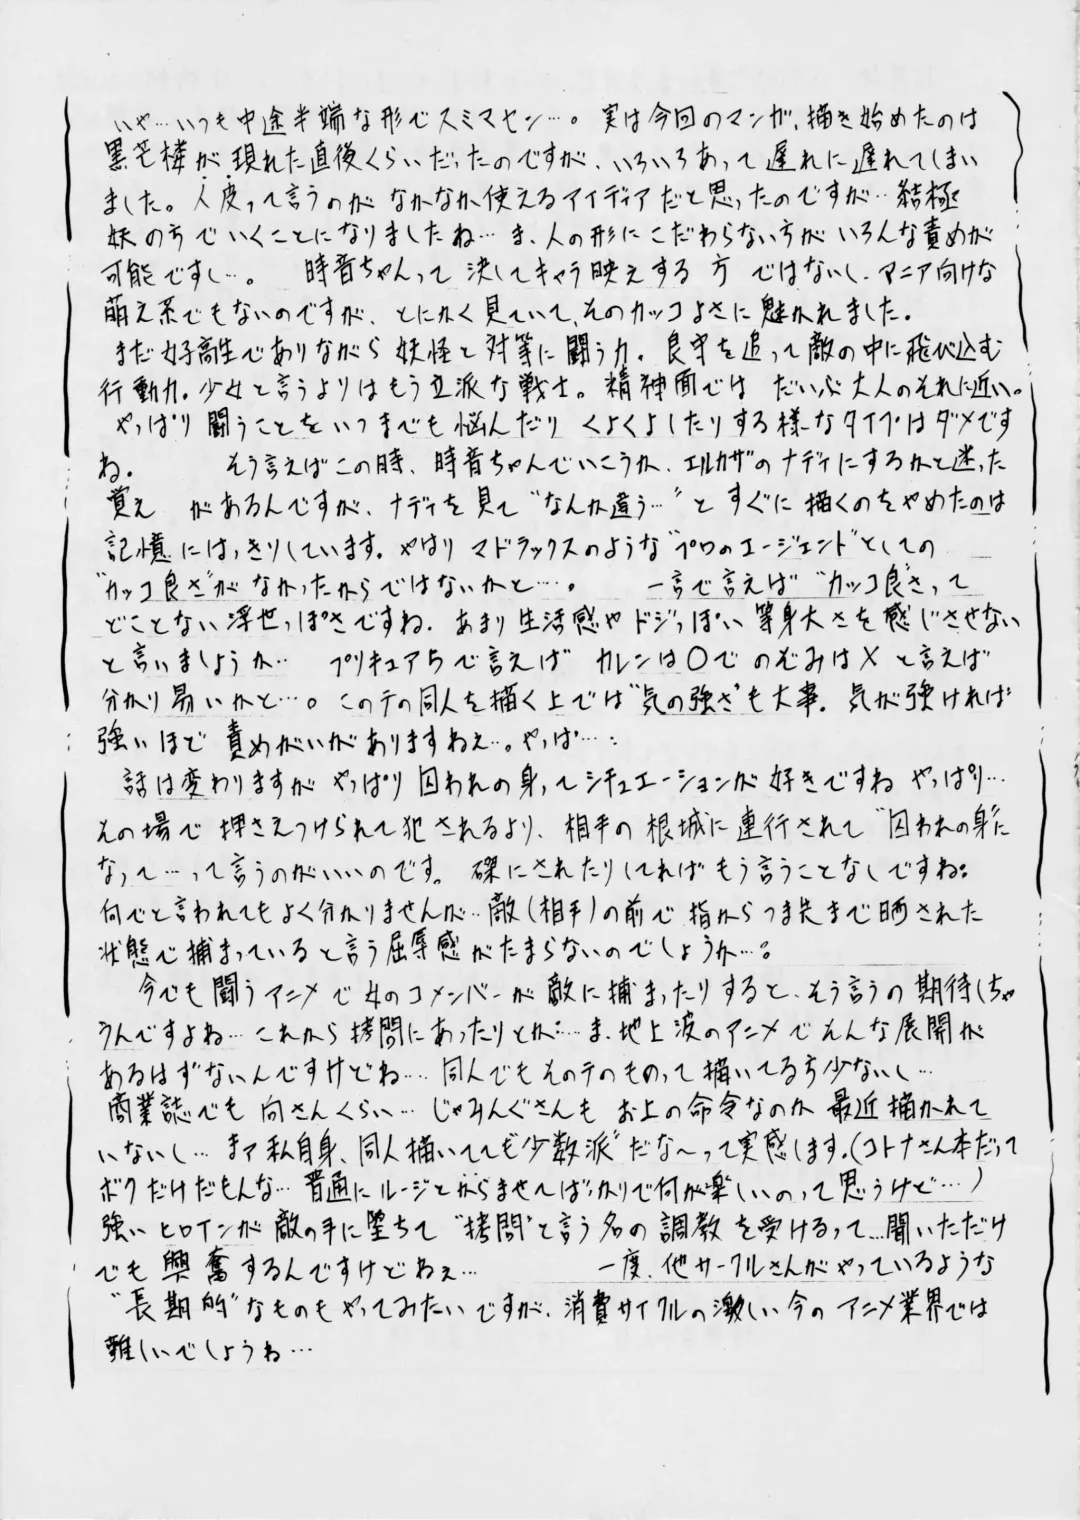 いや…いつも中途半端な形でスミマセン…。実は今回のマンガ、描き始めたのは
黒芒楼が現れた直後くらいだったのですが、いろいろあって遅れに遅れてしまい
ました。人皮って言うのがなかなか使えるアイディアだと思ったのですが…結極
妖の方でいくことになりましたね…ま、人の形にこだわらない方がいろんな責めが
可能ですし…。 時音ちゃんって決してキャラ映えする方ではないし、マニア向けな
萌え系でもないのですが、とにかく見ていて、そのカッコよさに魅かれました。
まだ女子高生でありながら妖怪と対等に闘う力。良守を追って敵の中に飛び込む
行動力。少女と言うよりはもう立派な戦士。精神面では だいぶ大人のそれに近い。
やっぱり闘うことをいつまでも悩んだりくよくよしたりする様なタイプはダメです
ね。 そう言えばこの時、時音ちゃんでいこうか、エルカザのナディにするかと迷った
覚え があるんですが、ナディを見て“なんか違う…”とすぐに描くのをやめたのは
記憶にはっきりしています。やはりマドラックスのような“プロのエージェント”としての
“カッコ良さ”がなかったからではないかと…。 一言で言えば“カッコ良さ”って
どことない浮世っぽさですね。あまり生活感やドジっぽい等身大さを感じさせない
と言いましょうか… プリキュア5で言えば カレンは○でのぞみは×と言えば
分かり易いかと…。このテの同人を描く上では“気の強さ”も大事。気が強ければ
強いほど責めがいがありますねえ…。やっぱ…
話は変わりますがやっぱり囚われの身ってシチュエーションが好きですね やっぱり…
その場で押さえつけられて犯されるより、相手の根城に連行されて“囚われの身”に
なって…って言うのがいいのです。磔にされたりしてればもう言うことなしですね。
何でと言われてもよく分かりませんが…敵(相手)の前で指からつま先まで晒された
状態で捕まっていると言う屈辱感がたまらないのでしょうか…。
今でも闘うアニメで女のコメンバーが敵に捕まったりすると、そう言うの期待しちゃ
うんですよね…これから拷問にあったりとか…ま、地上波のアニメでそんな展開が
あるはずないんですけどね… 同人でもそのテのものって描いてる方少ないし…
商業誌でも 向さんくらい…じゃみんぐさんもお上の命令なのか最近描かれて
いないし… まァ私自身、同人描いてても“少数派”だな～って実感します。(コトナさん本だって
ボクだけだもんな…普通にルージとからませてばっかりで何が楽しいのって思うけど…)
強いヒロインが敵の手に堕ちて“拷問”と言う名の調教を受けるって…聞いただけ
でも興奮するんですけどねぇ… 一度、他サークルさんがやっているような
“長期的”なものもやってみたいですが、消費サイクルの激しい今のアニメ業界では
難しいでしょうね…